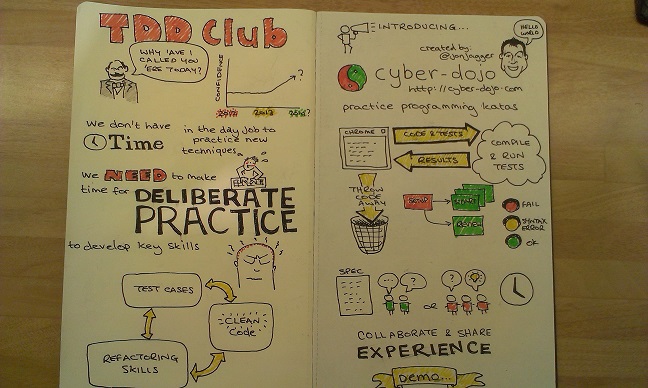 TDD Club
WHY 'AVE I
CALLED YOU
'ERE TODAY?
CONFIDENCE
?
2013
We don't have
Time
in the day job to
practice new
techniques.
We NEED to make
time for DELIBERATE
PRACTICE
to develop key skills
TEST CASES
CLEAN
Code
REFACTORING
SKILLS
INTRODUCING...
HELLO
WORLD
created by:
@jonjagger
cyber-dojo
http://cyber-dojo.com
practice programming katas
CHROME
CODE & TESTS
RESULTS
COMPILE
& RUN
TESTS
THROW
CODE
AWAY
FAIL
SYNTAX
ERROR
OK
SPEC
?
OR
COLLABORATE & SHARE
EXPERIENCE
DEMO...